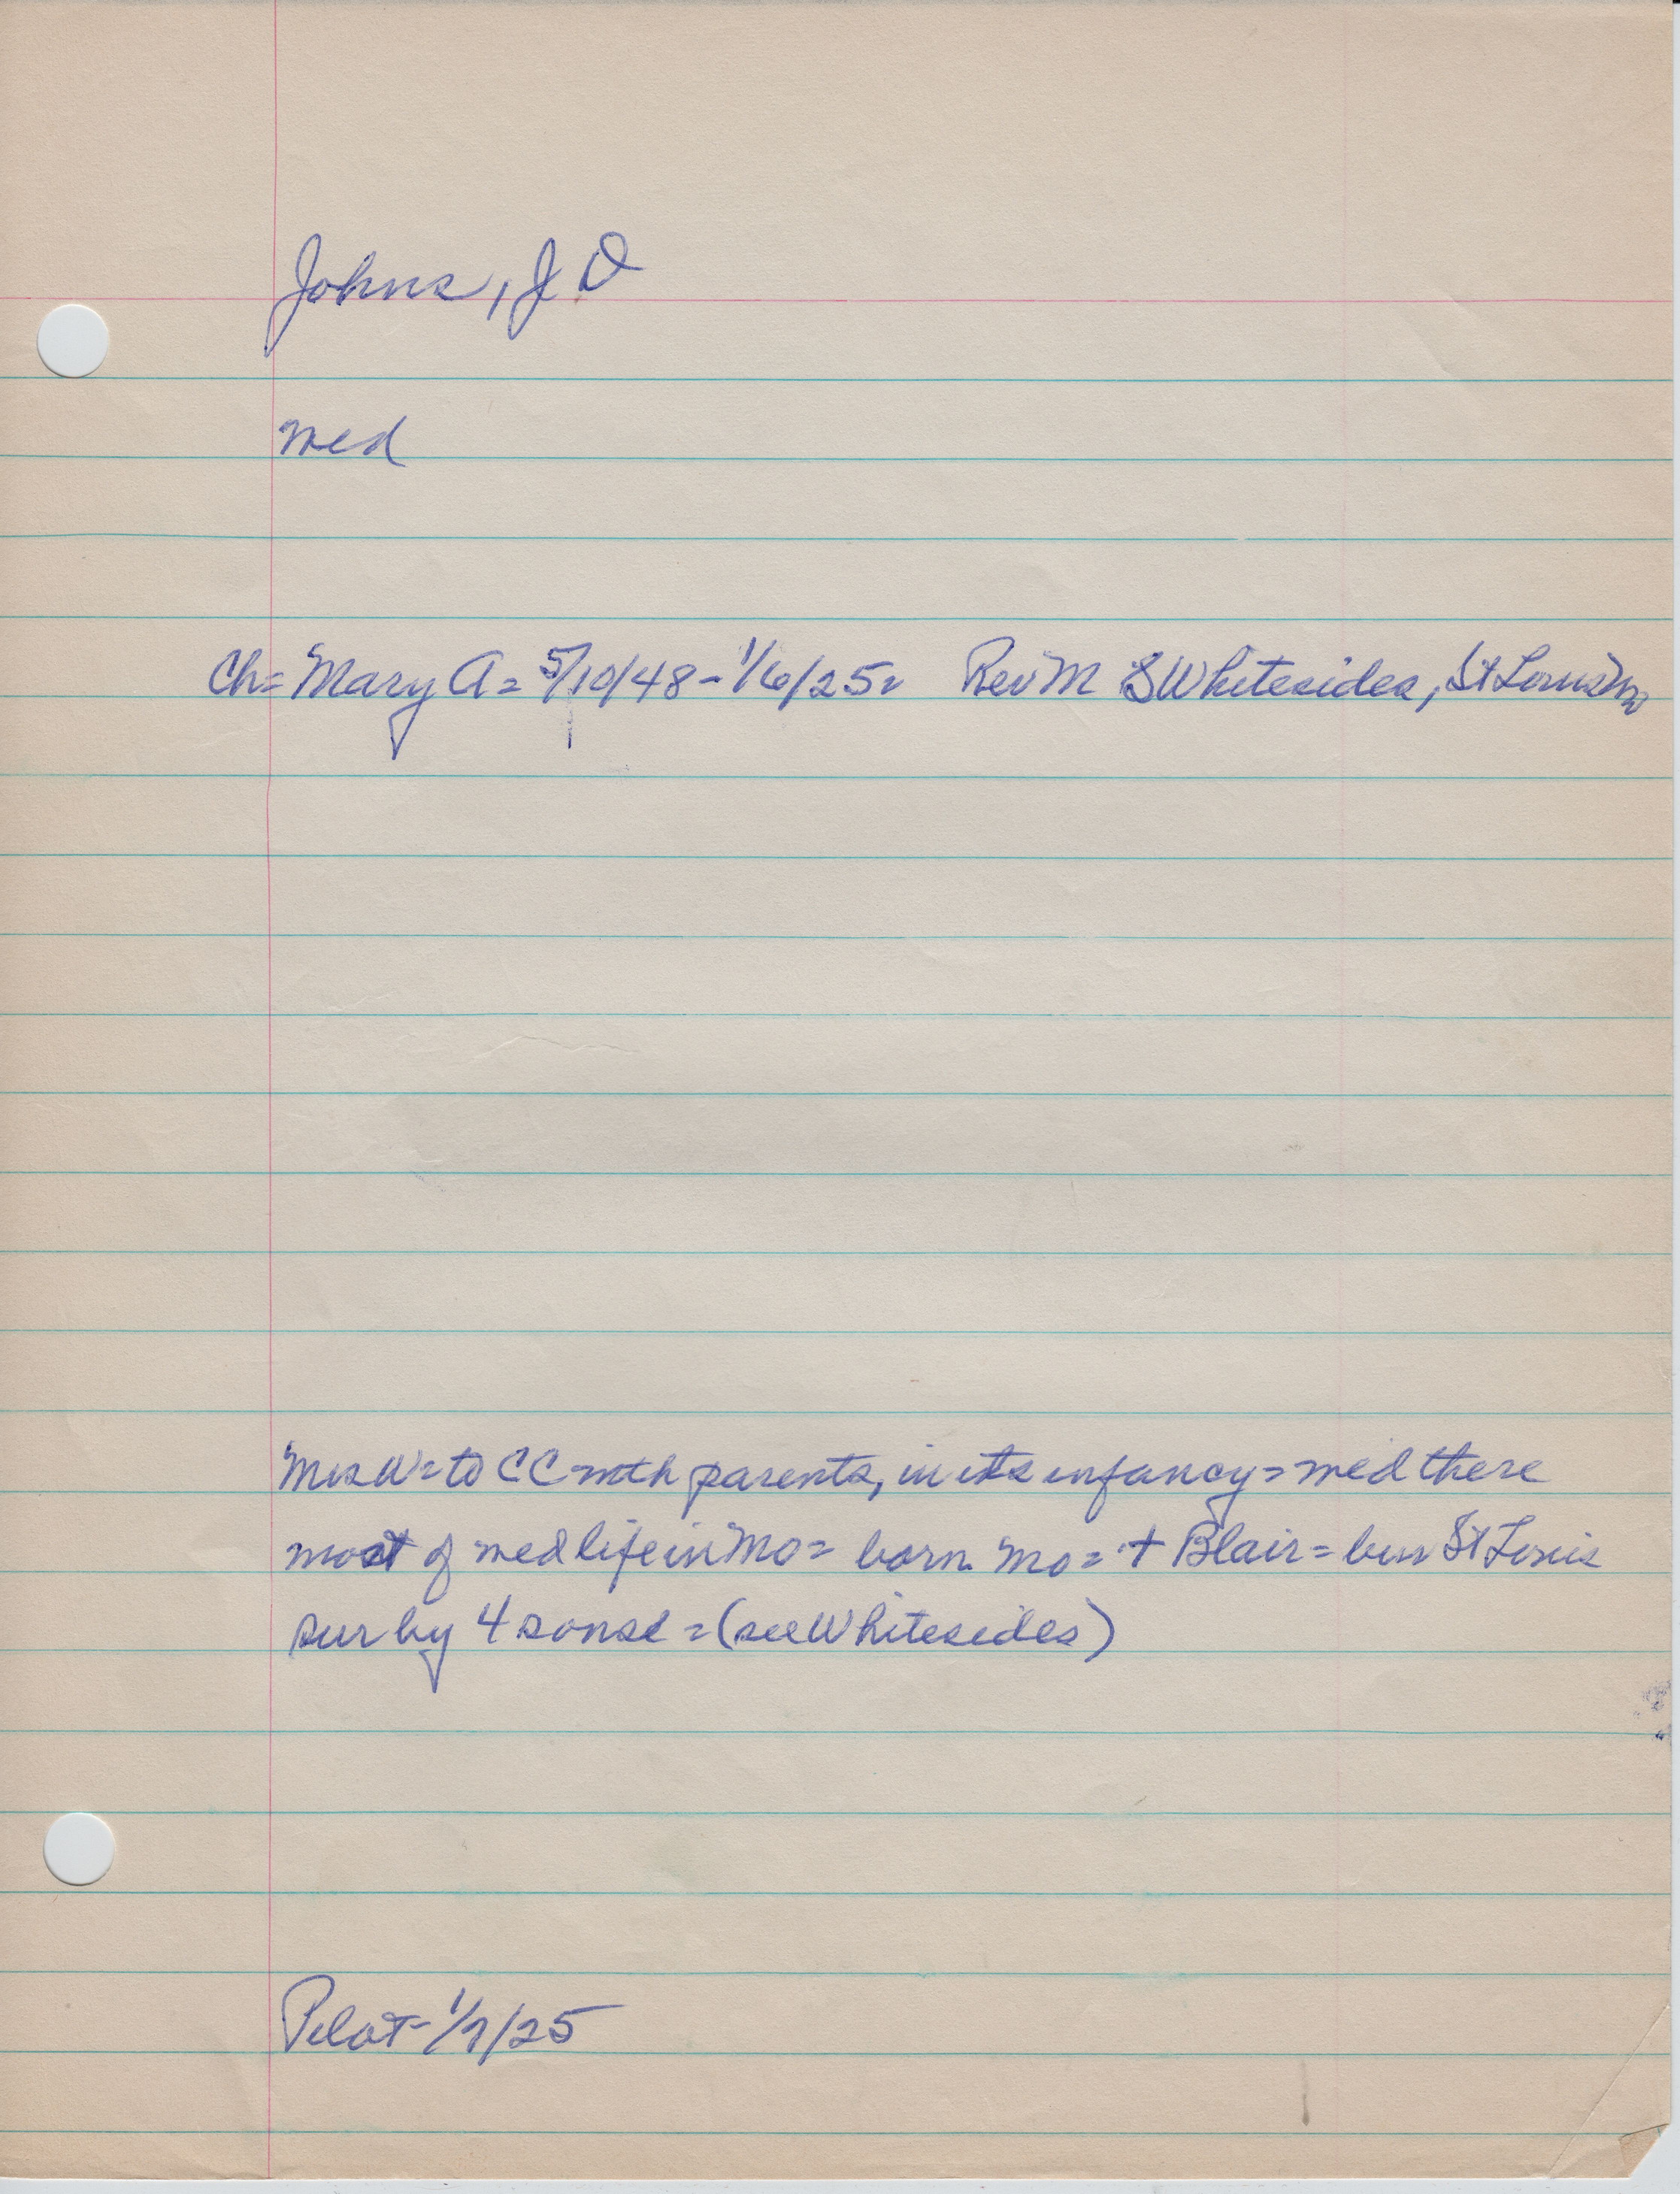 Johns, J D
med
Ch= Mary A= 5/10/48-1/6/25= Rev M S Whitesides, St Louis Mo
Mrs W= to CC with parents, in its infancy= med there
most of med life in Mo= born Mo= + Blair= bur St Louis
sur by 4 sons = (see Whitesides)
Pilot- 1/7/25